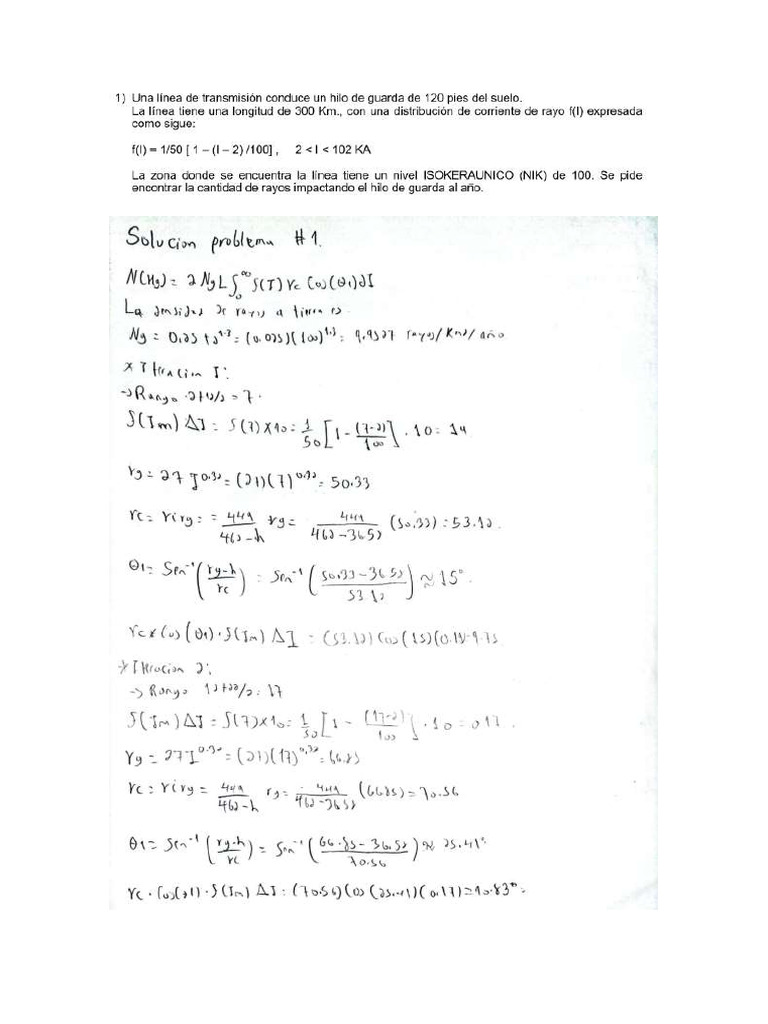 1) Una línea de transmisión conduce un hilo de guarda de 120 pies del suelo.
La línea tiene una longitud de 300 Km., con una distribución de corriente de rayo f(I) expresada
como sigue:
f(I) = 1/50 [ 1 – (I – 2) /100] , 2 < I < 102 KA
La zona donde se encuentra la línea tiene un nivel ISOKERAUNICO (NIK) de 100. Se pide
encontrar la cantidad de rayos impactando el hilo de guarda al año.
Solucion problema #1.
N(Hg) = 2 Ng L ∫₀^∞ S(I) rc Cos(θ1) dI
La densidad de rayos a tierra es
Ng = 0.25 td^1.3 = (0.025)(100)^1.3 = 9.9527 rayos/Km2/año
* Iteracion I:
→ Rango 2+12/2 = 7.
S(Im) ΔI = S(7)×10 = 1/50 [1 - (7-2)/100] · 10 = 19
rg = 27 I^0.32 = (27)(7)^0.32 = 50.33
rc = rirg = 444/462-h rg = 444/462-36.52 (50.33) = 53.12.
θ1 = Sen⁻¹ (rg-h/rc) = Sen⁻¹ (50.33-36.52/53.12) ≈ 15°.
rc × Cos(θ1) · S(Im) ΔI = (53.12) Cos(15)(0.19 = 9.75
→ Iteracion 2:
→ Rango 12+22/2 = 17
S(Im) ΔI = S(7)×10 = 1/50 [1 - (17-2)/100] · 10 = 017.
rg = 27 I^0.32 = (27)(17)^0.32 = 66.85
rc = rirg = 444/462-h rg = 444/462-36.52 (66.85) = 70.56
θ1 = Sen⁻¹ (rg-h/rc) = Sen⁻¹ (66.85-36.52/70.56) ≈ 25.41°
rc · Cos(θ1) · S(Im) ΔI = (70.56) Cos(25.41)(0.17) = 10.83°